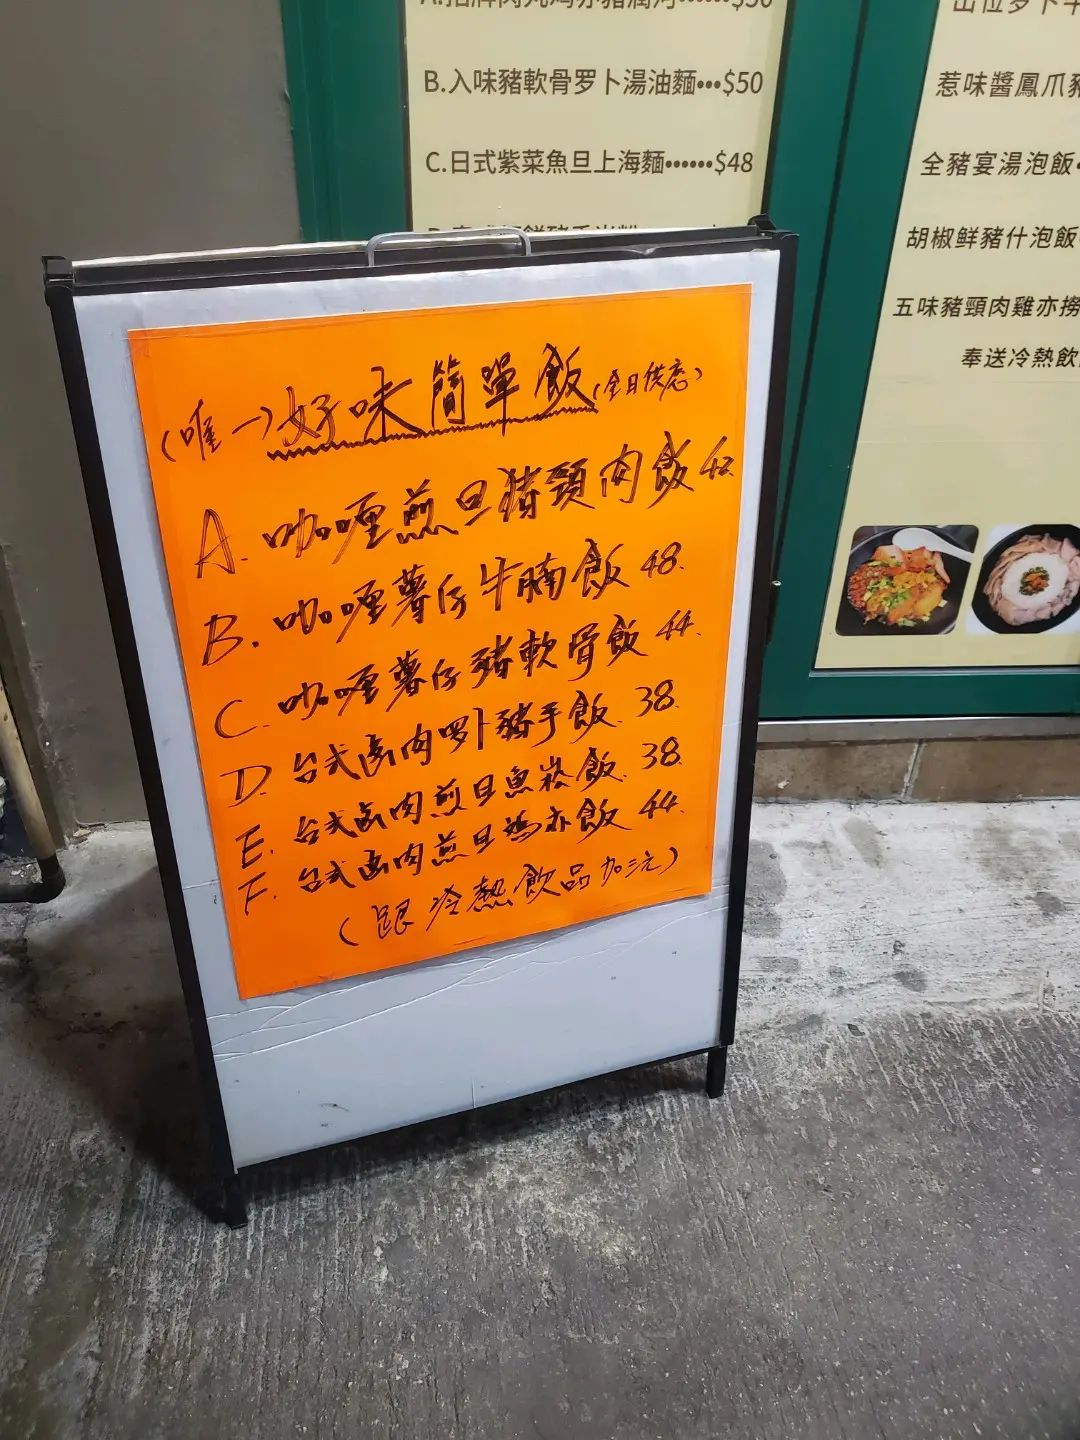 B.入味豬軟骨罗卜湯油麵•••$50
C.日式紫菜魚旦上海麵••••••$48
惹味醬鳳爪豬
全豬宴湯泡飯•
胡椒鮮豬什泡飯
五味豬頸肉雞亦撈
奉送冷熱飲
(唯一)好味簡單飯(全日供应)
A. 咖喱煎旦猪頸肉飯 42.
B. 咖喱薯仔牛腩飯 48.
C. 咖喱薯仔豬軟骨飯 44.
D. 台式卤肉罗卜豬手飯. 38.
E. 台式卤肉煎旦魚崧飯. 38.
F. 台式卤肉煎旦鸡亦飯 44.
(跟冷熱飲品加三元)